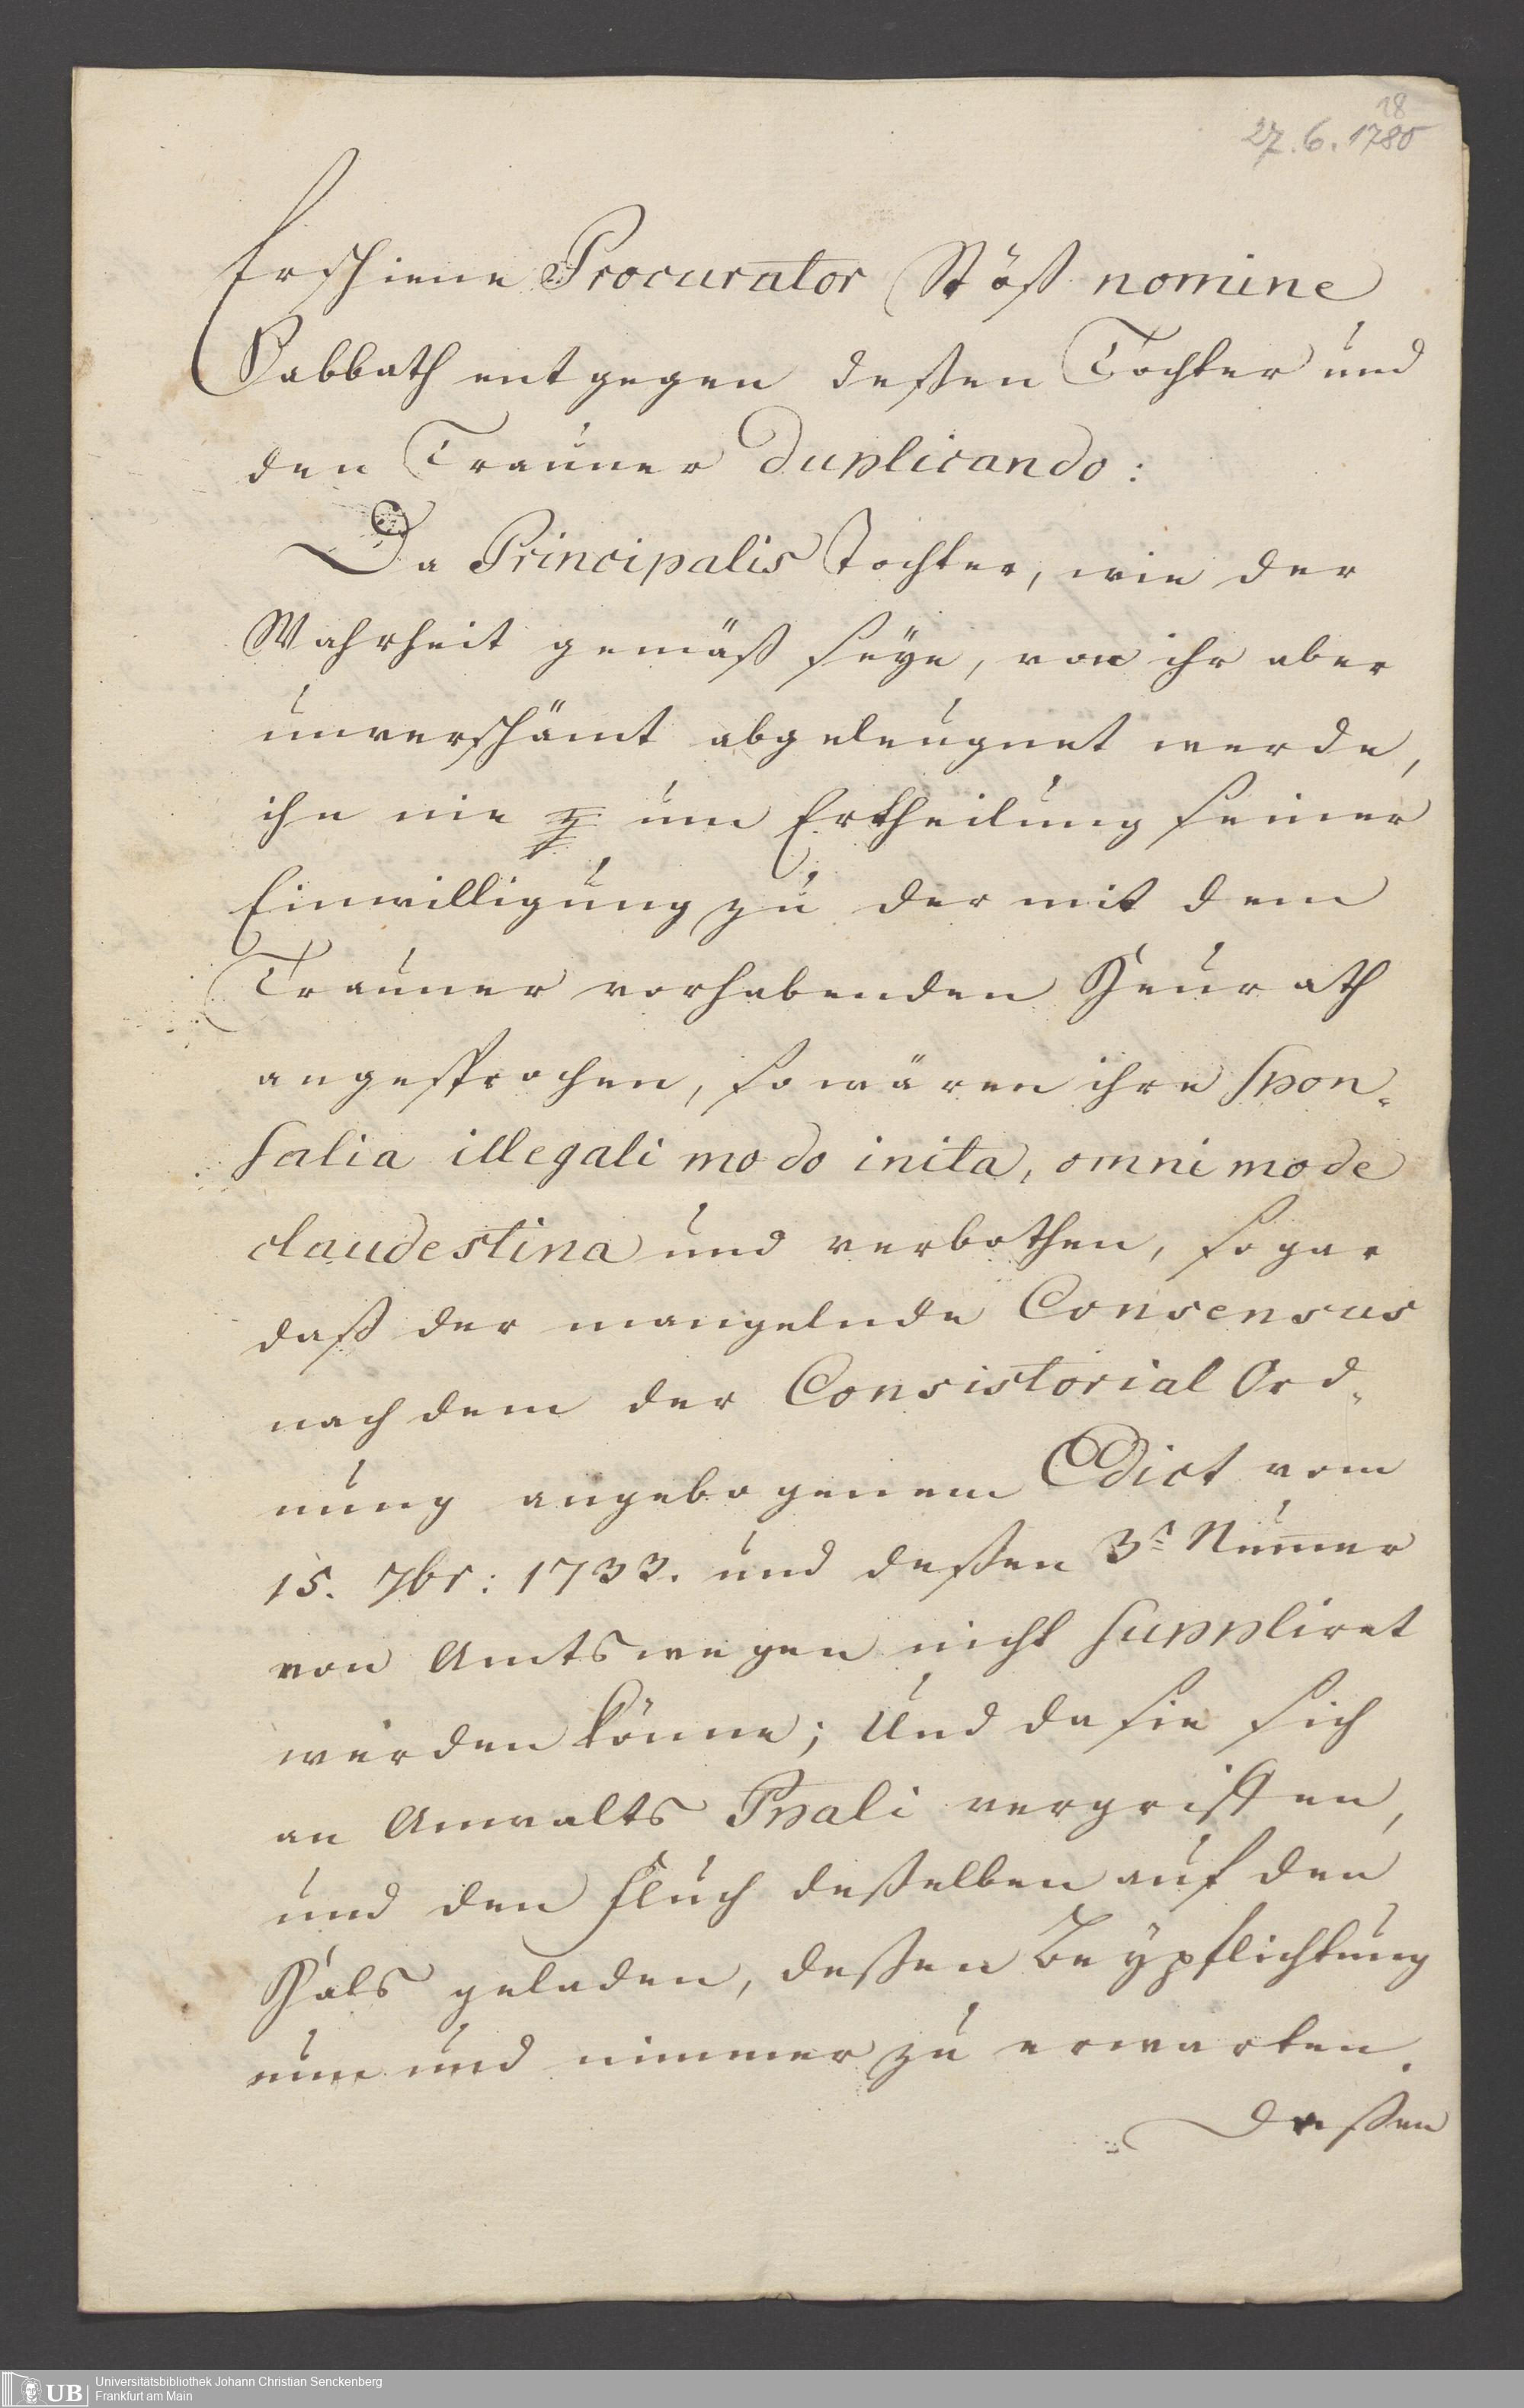 18
27.6.1780
Erschiene Procurator Stöß nomine
Sabbath entgegen deßen Tochter und
den Trauner duplicando:
Da Principalis Tochter, wie der
Wahrheit gemäß seÿe, von ihr aber
unverschämt abgeleugnet werde,
ihn nie um Ertheilung seiner
Einwilligung zu der mit dem
Trauner vorhabenden Heurath
angesprochen, so wären ihre Spon-
salia illegali modo inita, omnimode
claudestina und verbothen, sogar
daß der mangelnde Consensus
nach dem der Consistorial Ord-
nung angebogenem Edict vom
15. 7br: 1733. und deßen 3r Numer
von Amtswegen nicht suppliret
werden könne; Und da sie sich
an Anwalts Ppali vergriffen,
und den Fluch deßelben auf den
Hals geladen, deßen Beÿpflichtung
nun und nimmer zu erwarten.
Deßen
UB
Universitätsbibliothek Johann Christian Senckenberg
Frankfurt am Main